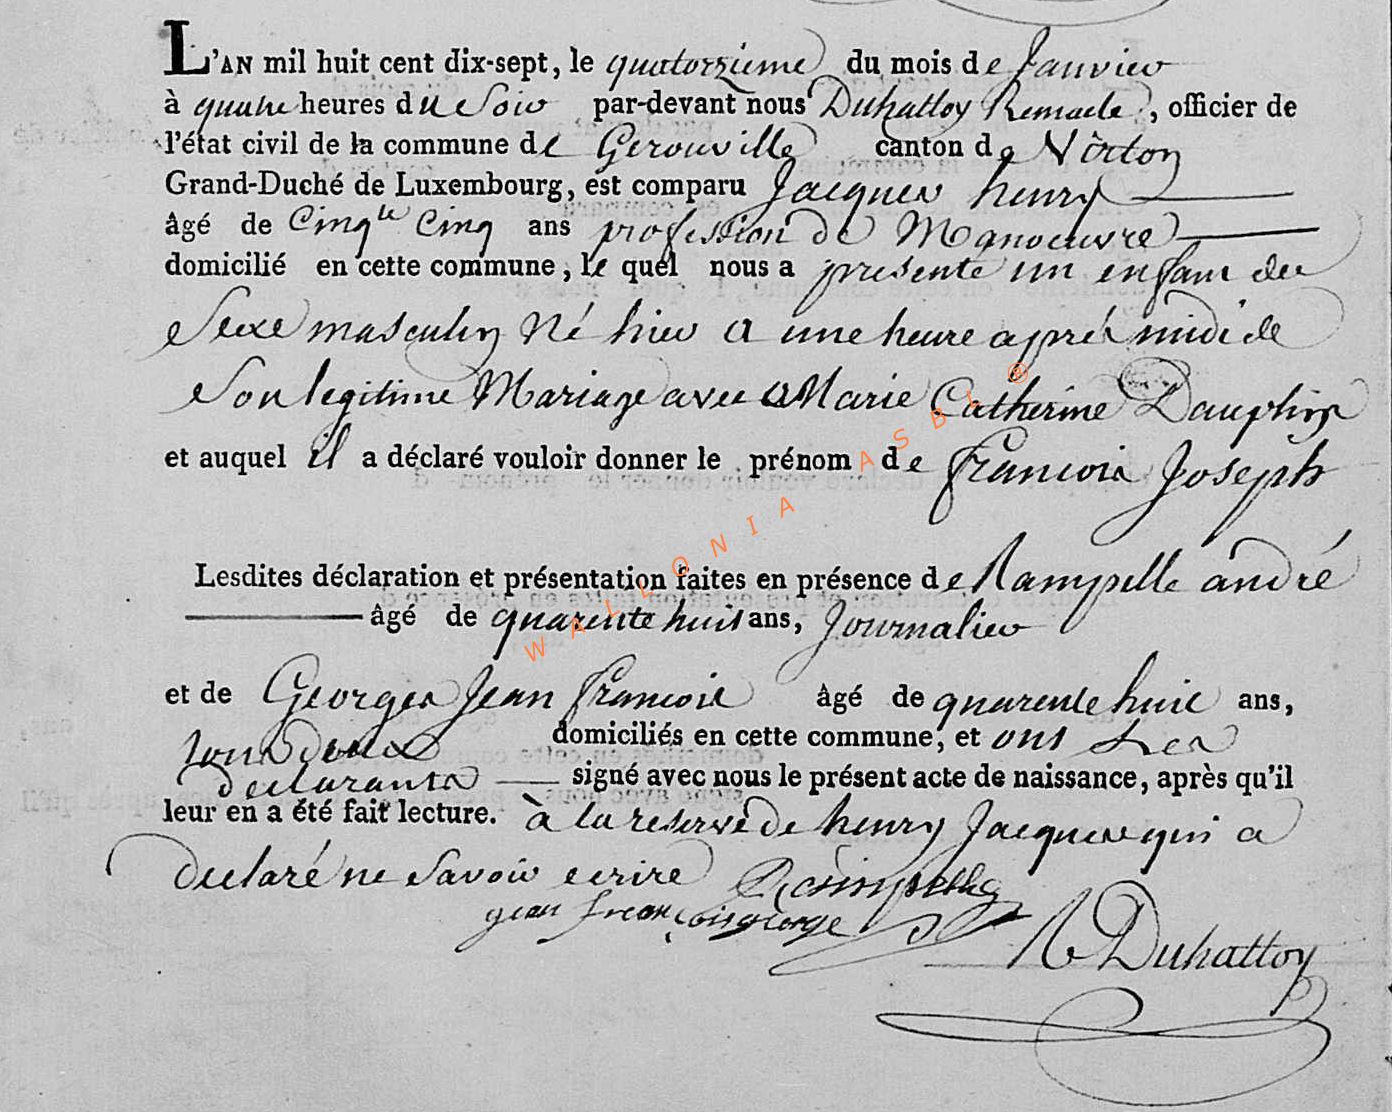 L'AN mil huit cent dix-sept, le quatorzieme du mois de Janvier
à quatre heures du Soir par-devant nous Duhattoy Remacle, officier de
l'état civil de la commune de Gerouville canton de Virton
Grand-Duché de Luxembourg, est comparu Jacques henry
âgé de Cinqte Cinq ans profession de Manoeuvre
domicilié en cette commune, le quel nous a presenté un enfant du
Sexe masculin Né hier a une heure aprés midi de
Son legitime Mariage avec Marie Catherine Dauphin
et auquel il a déclaré vouloir donner le prénom de francois Joseph
Lesdites déclaration et présentation faites en présence de Rampelle andré
âgé de quarente huit ans, Journalier
et de Georges Jean francois âgé de quarente huit ans,
tous deux domiciliés en cette commune, et ont Les
declarants signé avec nous le présent acte de naissance, après qu'il
leur en a été fait lecture. à la reserve de henry Jacques qui a
declaré ne Savoir ecrire
jean françois george
R Duhattoy
WALLONIA ASBL ®